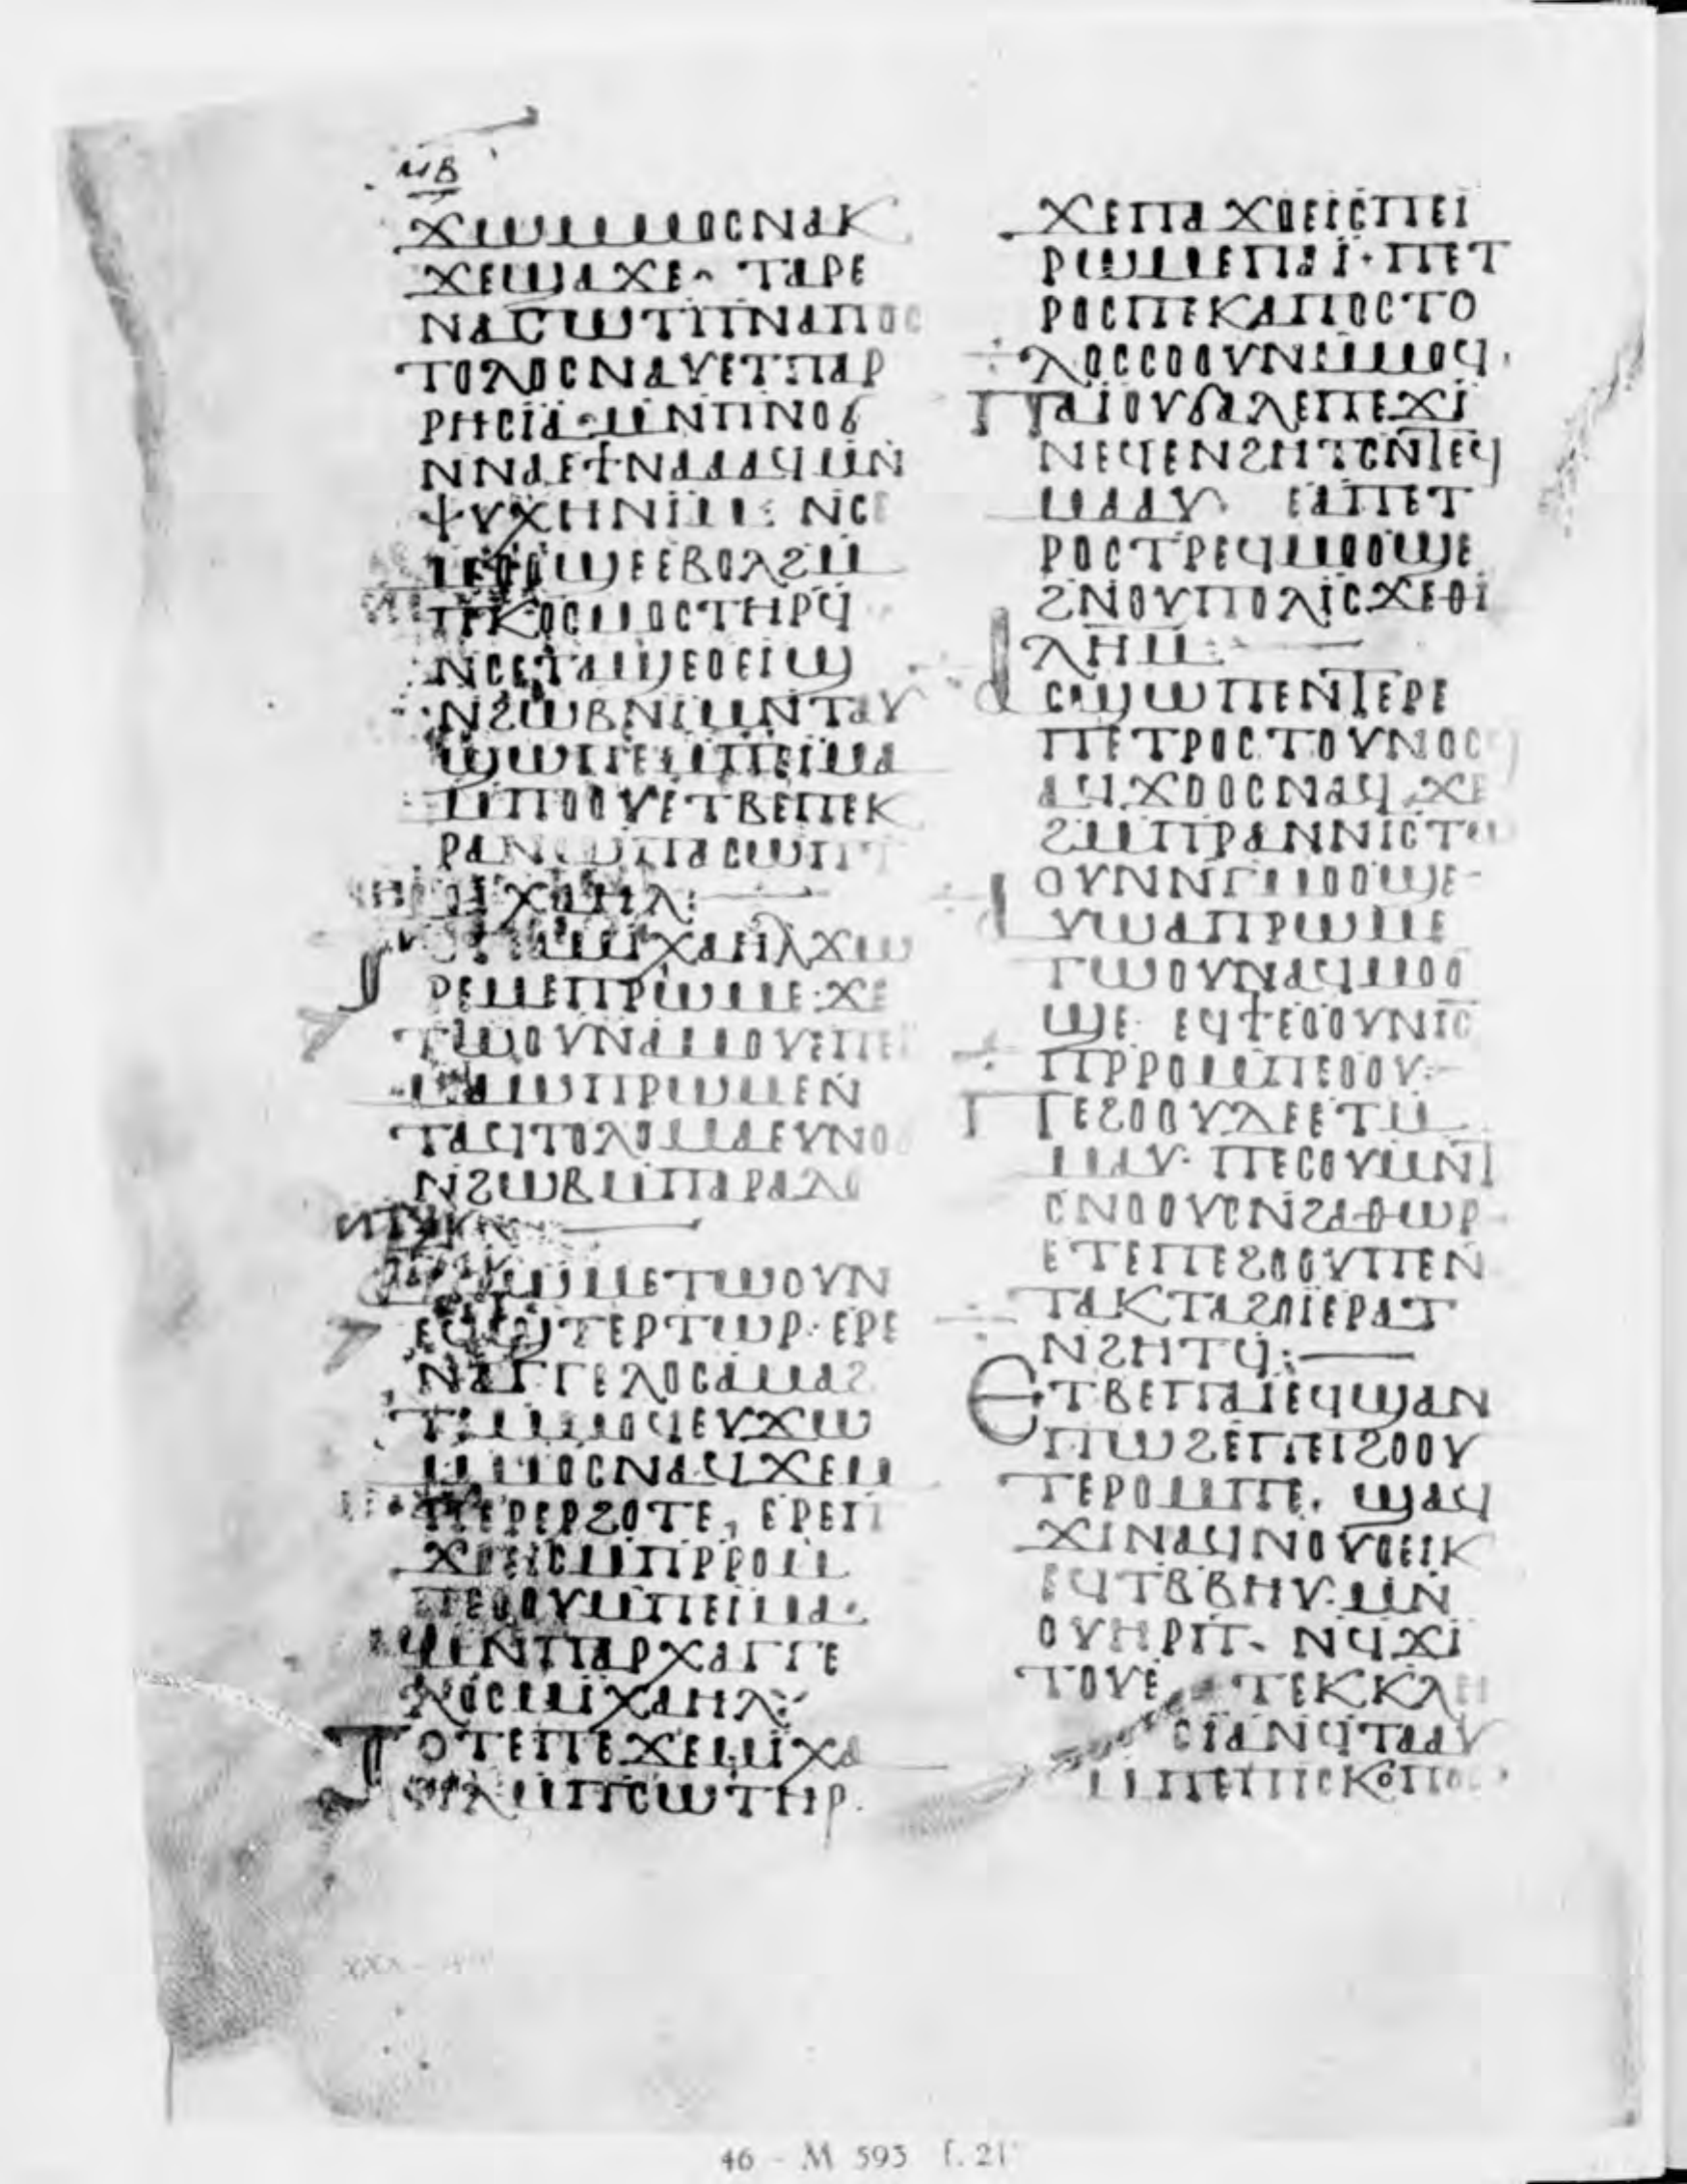 ⲙⲃ
ϫⲱⲙⲙⲟⲥⲛⲁⲕ
ϫⲉϣⲁϫⲉ· ⲧⲁⲣⲉ
ⲛⲁⲥⲱⲧⲡⲛⲁⲡⲟⲥ
ⲧⲟⲗⲟⲥⲛⲁⲩⲉⲧⲡⲁⲣ
ⲣⲏⲥⲓⲁ·ⲙⲛⲧⲡⲛⲟϭ
ⲛⲛⲁⲉϯⲛⲁⲁⲁϥⲙⲛ
ⲯⲩⲭⲏⲛⲓⲙ: ⲛⲥⲉ
ⲙⲟⲟϣⲉⲉⲃⲟⲗϩⲙ
ⲡⲕⲟⲥⲙⲟⲥⲧⲏⲣϥ
ⲛⲥⲉⲧⲁϣⲉⲟⲉⲓϣ
ⲛϩⲱⲃⲛⲓⲙⲛⲧⲁⲩ
ϣⲱⲡⲉⲙⲡⲉⲓⲙⲁ
ⲙⲡⲟⲟⲩⲉⲧⲃⲉⲡⲉⲕ
ⲣⲁⲛⲱⲡⲁⲥⲱⲧⲡ
ⲙⲓⲭⲁⲏⲗ:
ⲧⲟⲧⲉⲁⲙⲓⲭⲁⲏⲗϫⲱ
ⲣⲉⲙⲉⲡⲣⲱⲙⲉ·ϫⲉ
ⲧⲱⲟⲩⲛⲁⲙⲟⲩⲉⲡⲉⲓ
ⲙⲁⲱⲡⲣⲱⲙⲉⲛ
ⲧⲁϥⲧⲟⲗⲙⲁⲉⲩⲛⲟϭ
ⲛϩⲱⲃⲙⲡⲁⲣⲁⲇⲟ
ⲡⲣⲱⲙⲉⲧⲱⲟⲩⲛ
ⲉϥϣⲧⲉⲣⲧⲱⲣ·ⲉⲣⲉ
ⲛⲁⲅⲅⲉⲗⲟⲥⲁⲙⲁϩ
ⲧⲉⲙⲙⲟϥⲉⲩϫⲱ
ⲙⲙⲟⲥⲛⲁϥϫⲉⲙ
ⲡⲉⲣⲉⲣϩⲟⲧⲉ, ⲉⲣⲉⲡ
ϫⲟⲉⲓⲥⲙⲡⲣⲣⲟⲙ
ⲡⲉⲟⲟⲩⲙⲡⲉⲓⲙⲁ·
ⲙⲛⲡⲁⲣⲭⲁⲅⲅⲉ
ⲗⲟⲥⲙⲓⲭⲁⲏⲗ:
ⲧⲟⲧⲉⲡⲉϫⲉⲙⲓⲭⲁ
ⲏⲗⲙⲡⲥⲱⲧⲏⲣ·
ϫⲉⲡⲁϫⲟⲉⲓⲥⲡⲉⲓ
ⲣⲱⲙⲉⲡⲁⲓ·ⲡⲉⲧ
ⲣⲟⲥⲡⲉⲕⲁⲡⲟⲥⲧⲟ
ⲗⲟⲥⲥⲟⲟⲩⲛⲙⲙⲟϥ·
ⲡⲁⲓⲟⲩϭⲁⲗⲉⲡⲉϫⲓ
ⲛⲉϥⲉⲛϩⲏⲧⲥⲛⲧⲉϥ
ⲙⲁⲁⲩ ⲉⲁⲡⲉⲧ
ⲣⲟⲥⲧⲣⲉϥⲙⲟⲟϣⲉ
ϩⲛⲟⲩⲡⲟⲗⲓⲥϫⲉⲑⲓ
ⲗⲏⲙ:
ⲁⲥϣⲱⲡⲉⲛⲧⲉⲣⲉ
ⲡⲉⲧⲣⲟⲥⲧⲟⲩⲛⲟⲥϥ
ⲁϥϫⲟⲟⲥⲛⲁϥ·ϫⲉ
ϩⲙⲡⲣⲁⲛⲛⲓⲥⲧⲱ
ⲟⲩⲛⲛⲅⲙⲟⲟϣⲉ·
ⲁⲩⲱⲁⲡⲣⲱⲙⲉ
ⲧⲱⲟⲩⲛⲁϥⲙⲟⲟ
ϣⲉ· ⲉϥϯⲉⲟⲟⲩⲛⲓⲥ
ⲡⲣⲣⲟⲙⲡⲉⲟⲟⲩ:
ⲡⲉϩⲟⲟⲩⲇⲉⲉⲧⲙ
ⲙⲁⲩ· ⲡⲉⲥⲟⲩⲙⲛⲧ
ⲥⲛⲟⲟⲩⲥⲛϩⲁⲑⲱⲣ·
ⲉⲧⲉⲡⲉϩⲟⲟⲩⲡⲉⲛ
ⲧⲁⲕⲧⲁϩⲟⲓⲉⲣⲁⲧ
ⲛϩⲏⲧϥ:
ⲉⲧⲃⲉⲡⲁⲓⲉϥϣⲁⲛ
ⲡⲱϩⲉⲡⲉⲓϩⲟⲟⲩ
ⲧⲉⲣⲟⲙⲡⲉ. ϣⲁϥ
ϫⲓⲛⲁϥⲛⲟⲩⲟⲉⲓⲕ
ⲉϥⲧⲃⲃⲏⲩ·ⲙⲛ
ⲟⲩⲏⲣⲡ· ⲛϥϫⲓ
ⲧⲟⲩⲉ ⲧⲉⲕⲕⲗⲏ
ⲥⲓⲁⲛϥⲧⲁⲁⲩ
ⲙⲡⲉⲡⲓⲥⲕⲟⲡⲟⲥ
46 - M 593 f. 21ᵛ